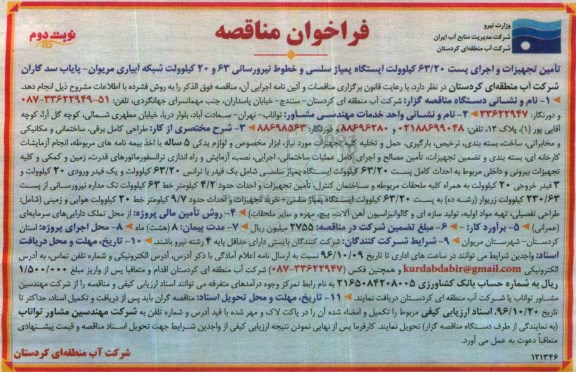 وزارت نیرو
شرکت مدیریت منابع آب ایران
شرکت آب منطقه‌ای کردستان
فراخوان مناقصه
نوبت دوم
تأمین تجهیزات و اجرای پست ۶۳/۲۰ کیلوولت ایستگاه پمپاژ سلسی و خطوط نیرورسانی ۶۳ و ۲۰ کیلوولت شبکه آبیاری مریوان- پایاب سد گاران
شرکت آب منطقه‌ای کردستان در نظر دارد، با رعایت قانون برگزاری مناقصات و آئین نامه اجرایی آن، مناقصه فوق الذکر را به روش فشرده با اطلاعات مشروح ذیل انجام دهد.
۱- نام و نشانی دستگاه مناقصه گزار: شرکت آب منطقه‌ای کردستان - سنندج- خیابان پاسداران، جنب مهمانسرای جهانگردی، تلفن: ۵۱-۳۳۶۲۲۹۴۹-۰۸۷
و دورنگار: ۳۳۶۲۲۹۴۷ ۲- نام و نشانی واحد خدمات مهندسی مشاور: تواناب- تهران- سعادت آباد، بلوار دریا، خیابان مطهری شمالی، کوچه گل آرا، کوچه
آقایی پور (۱)، پلاک ۱۳، تلفن: ۰۲۱۸۸۶۹۹۰۳۸ و ۸۸۶۹۶۲۸۰ و دورنگار: ۸۸۶۹۸۵۶۳ ۳- شرح مختصری از کار: طراحی کامل برقی، ساختمانی و مکانیکی
و مخابراتی، ساخت، بسته بندی، ترخیص، بارگیری، حمل و تخلیه مورد نیاز، ابزار مخصوص و لوازم یدکی ۵ ساله با اخذ بیمه نامه های مربوطه، انجام آزمایشات
کارخانه ای، بسته بندی و تضمین تجهیزات، تأمین مصالح و اجرای کامل عملیات ساختمانی، اجرایی، نصب، آزمایش و راه اندازی ترانسفورماتورهای قدرت، زمین و کمکی و کلیه
تجهیزات بیرونی و داخلی مربوط به احداث کامل پست ۶۳/۲۰ کیلوولت ایستگاه پمپاژ سلسی شامل یک فیدر با ترانس ۶۳/۲۰ کیلوولت و یک فیدر ورودی ۲۰ کیلوولت و
۳ فیدر خروجی ۲۰ کیلوولت به همراه کلیه ملحقات مربوطه و ساختمان کنترل، تأمین تجهیزات و احداث حدود ۴/۲ کیلومتر خط ۶۳ کیلوولت تک مداره نیرورسانی از پست
۲۳۰/۶۳ کیلوولت زریوار (رشته ده) به پست ۶۳/۲۰ کیلوولت ایستگاه پمپاژ سلسی- خرید تجهیزات و احداث حدود ۹/۷ کیلومتر خط ۲۰ کیلوولت هوایی و زمینی (شامل:
طراحی تفصیلی، تهیه مواد اولیه، تولید سازه ای و گالوانیزاسیون آهن آلات، پیچ، مهره و سایر ملحقات) ۴- روش تأمین مالی پروژه: از محل تملک دارایی‌های سرمایه‌ای
(عمرانی) ۵- برآورد کار: - ۶- مبلغ تضمین شرکت در مناقصه: ۲۷۵۵ میلیون ریال ۷- مدت پیمان: ۸ (هشت) ماه ۸- محل اجرای پروژه: استان
کردستان- شهرستان مریوان ۹- شرایط شرکت کنندگان: شرکت کنندگان بایستی دارای حداقل پایه ۴ رشته نیرو باشند. ۱۰- تاریخ، مهلت و محل دریافت
اسناد: واجدین شرایط می توانند در ساعت های اداری تا تاریخ ۹۶/۱۰/۰۹ نسبت به ارسال نامه اعلام آمادگی با ذکر آدرس، آدرس الکترونیکی و شماره تلفن تماس، به آدرس
الکترونیکی kurdabdabir@gmail.com و همچنین فکس (۳۳۶۲۲۹۴۷-۰۸۷) شرکت آب منطقه ای کردستان اقدام و متعاقباً پس از واریز مبلغ ۱/۵۰۰/۰۰۰
ریال به شماره حساب بانک کشاورزی ۲۱۶۵۰۸۴۲۰۸۰۰۵ به نام رابط تمرکز وجوه درآمدهای متفرقه می توانند اسناد ارزیابی کیفی و مناقصه را از شرکت مهندسین
مشاور تواناب یا شرکت آب منطقه ای کردستان دریافت نمایند. ۱۱- تاریخ، مهلت و محل تحویل اسناد: مناقصه گران باید پس از دریافت و تکمیل اسناد، حداکثر تا
تاریخ ۹۶/۱۰/۲۰، اسناد ارزیابی کیفی مربوط را تکمیل و امضاء شده آن را در پاکت لاک و مهر شده با قید آدرس و شماره تلفن به شرکت مهندسین مشاور تواناب
(به نمایندگی از طرف دستگاه مناقصه گزار) تحویل نمایند. کارفرما پس از نهایی نمودن نتیجه ارزیابی کیفی از واجدین شرایط جهت تحویل اسناد مناقصه و قیمت پیشنهادی
متعاقباً دعوت به عمل می آورد.
شرکت آب منطقه‌ای کردستان
۱۲۱۳۴۶